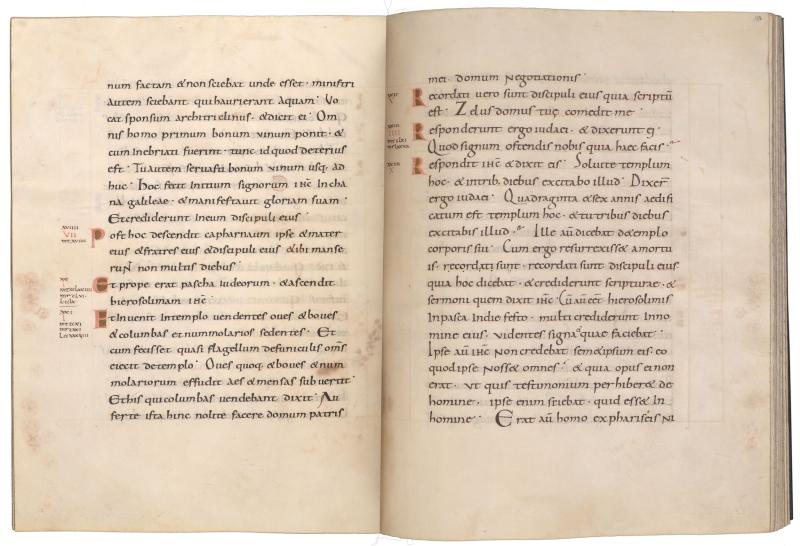 num factam & non sciebat unde esset · ministri
autem sciebant qui haurierant aquam · Vo
cat sponsum architriclinus · & dicit ei · Om
nis homo primum bonum uinum ponit · &
cum inebriati fuerint · tunc id quod deterius
est · Tu autem seruasti bonum uinum usq; ad
huc · Hoc fecit initium signorum ihc in cha
na galileae · & manifestauit gloriam suam ·
Et crediderunt in eum discipuli eius
Post hoc descendit capharnaum ipse & mater
eius & fratres eius & discipuli eius · & ibi manse
runt non multis diebus ·
Et prope erat pascha iudeorum · & ascendit
hierosolimam ihc ·
Et inuenit in templo uendentes oues & boues
& columbas et nummolarios sedentes · Et
cum fecisset quasi flagellum de funiculis oms
eiecit de templo · Oues quoq; & boues & num
molariorum effudit aes & mensas subuertit ·
Et his qui columbas uendebant dixit · Au
ferte ista hinc nolite facere domum patris
mei · domum negotiationis ·
Recordati uero sunt discipuli eius quia scriptū
est · Zelus domus tuę comedit me ·
Responderunt ergo iudaei · & dixerunt ei
Quod signum ostendis nobis quia haec facis ·
Respondit ihc & dixit eis · Soluite templum
hoc · & in trib; diebus excitabo illud · Dixer̄
ergo iudaei · Quadraginta & sex annis aedifi
catum est templum hoc · & tu tribus diebus
excitabis illud · Ille aū dicebat de templo
corporis sui · Cum ergo resurrexisse a mortu
is · recordati sunt · recordati sunt discipuli eius ·
quia hoc dicebat · & crediderunt scripturae · &
sermoni quem dixit ihc · Cū aū eet hierosolimis
in pasca in die festo · multi crediderunt in no
mine eius · uidentes signa quae faciebat ·
Ipse aū ihc non credebat semetipsum eis · eo
quod ipse nosse omnes · & quia opus ei non
erat · ut quis testimonium perhiber& de
homine · ipse enim sciebat · quid ess& in
homine · Erat aū homo ex phariseis ni